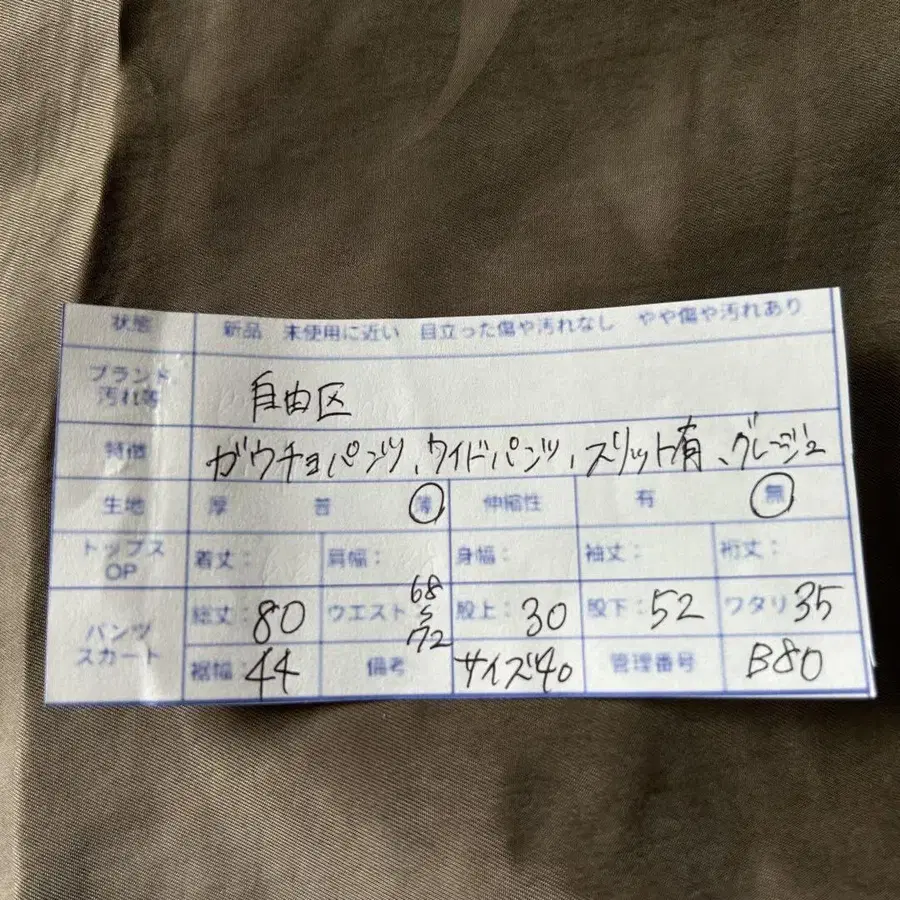 状態 新品 未使用に近い 目立った傷や汚れなし やや傷や汚れあり
ブランド 汚れ等 自由区
特徴 ガウチョパンツ、ワイドパンツ、スリット有、グレージュ
生地 厚 普 薄 伸縮性 有 無
トップス OP 着丈: 肩幅: 身幅: 袖丈: 裄丈:
パンツ スカート 総丈: 80 ウエスト 68~72 股上: 30 股下: 52 ワタリ 35
裾幅: 44 備考 サイズ40 管理番号 B80